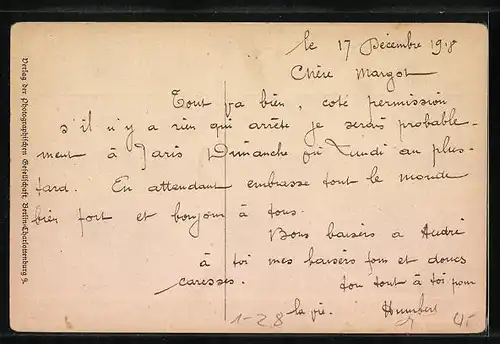 le 17 Décembre 1918
Chère Margot
Tout va bien, coté permission
s'il n'y a rien qui arrête je serais probable-
ment à Paris Dimanche ou Lundi au plus-
tard. En attendant embrasse tout le monde
bien fort et bonjour à tous.
Bons baisers a André
à toi mes baisers fous et doucs
caresses. ton tout à toi pour
la vie. Humbert
1-28
45
Verlag der Photographischen Gesellschaft, Berlin-Charlottenburg 9.